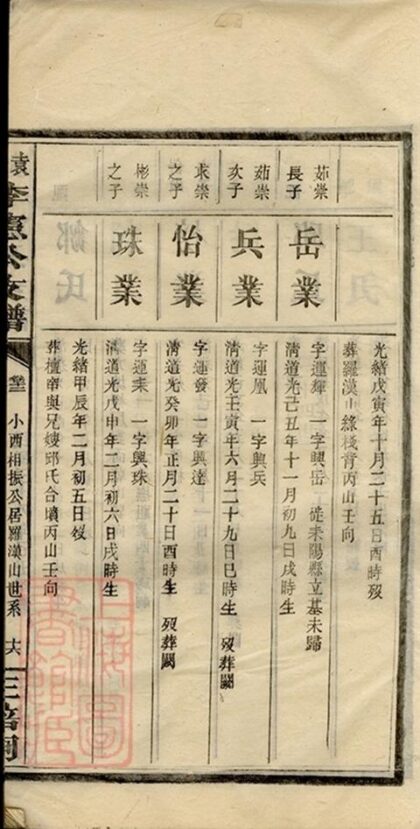 光緒戊寅年十月二十五日酉時歿
葬羅漢山綠棧背丙山壬向
茹崇
長子
岳業
字運輝 一字興岳 徙耒陽縣立基未歸
清道光己丑年十一月初九日戌時生
茹崇
次子
兵業
字運凰 一字興兵
清道光壬寅年六月二十九日巳時生 歿葬闕
求崇
之子
怡業
字運發 一字興達
清道光癸卯年正月二十日酉時生 歿葬闕
彬崇
之子
珠業
字運耒 一字興珠
清道光戊申年二月初六日戌時生
光緒甲辰年二月初五日歿
葬檀帝與兄嫂邱氏合墳丙山壬向
袁
公支譜
小酉相振公居羅漢山世系
十六